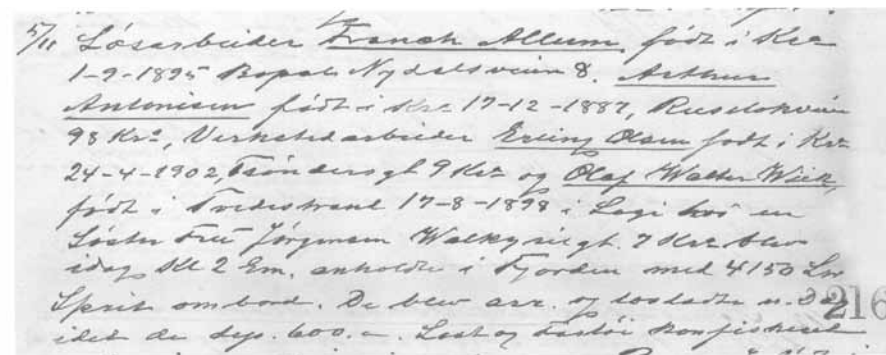 5/11 Løsarbeider Franck Allum, født i Kra
1-9-1895 Bopæl Nydalsveien 8. Arthur
Antonisen født i Kra 17-12-1887, Ruseløkveien
98 Kra, Verkstedarbeider Erling Olsen født i Kra
24-4-1902, Tøndersgt 9 Kra og Olaf Walter Wiik,
født i Tvedestrand 17-8-1898 i Logi hos en
Søster Frü Jørgensen Walkyriegt. 7 Kra blev
idag Kl 2 Em. anholdt i Fjorden med 4150 Ltr
Sprit ombord. De blev arr. og løsladt n. Dag
idet de dep. 600.- Last og Fartøi konfiskeret
216